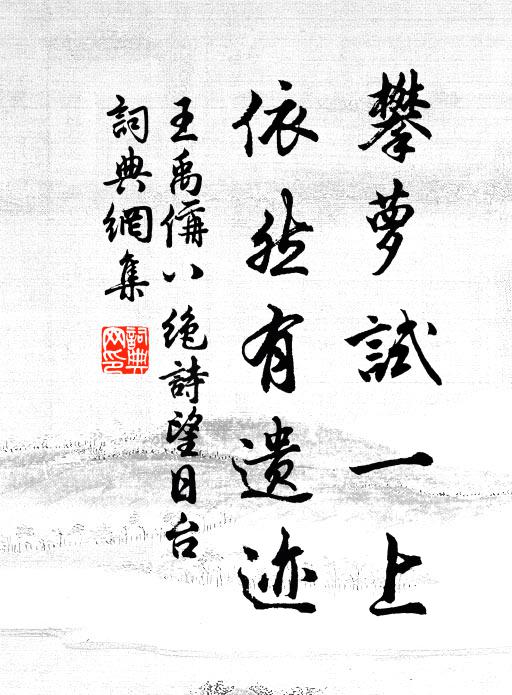 攀萝試一上
依然有遗迹
王禹偁八绝詩望日台
詞典網集
詞典
网印